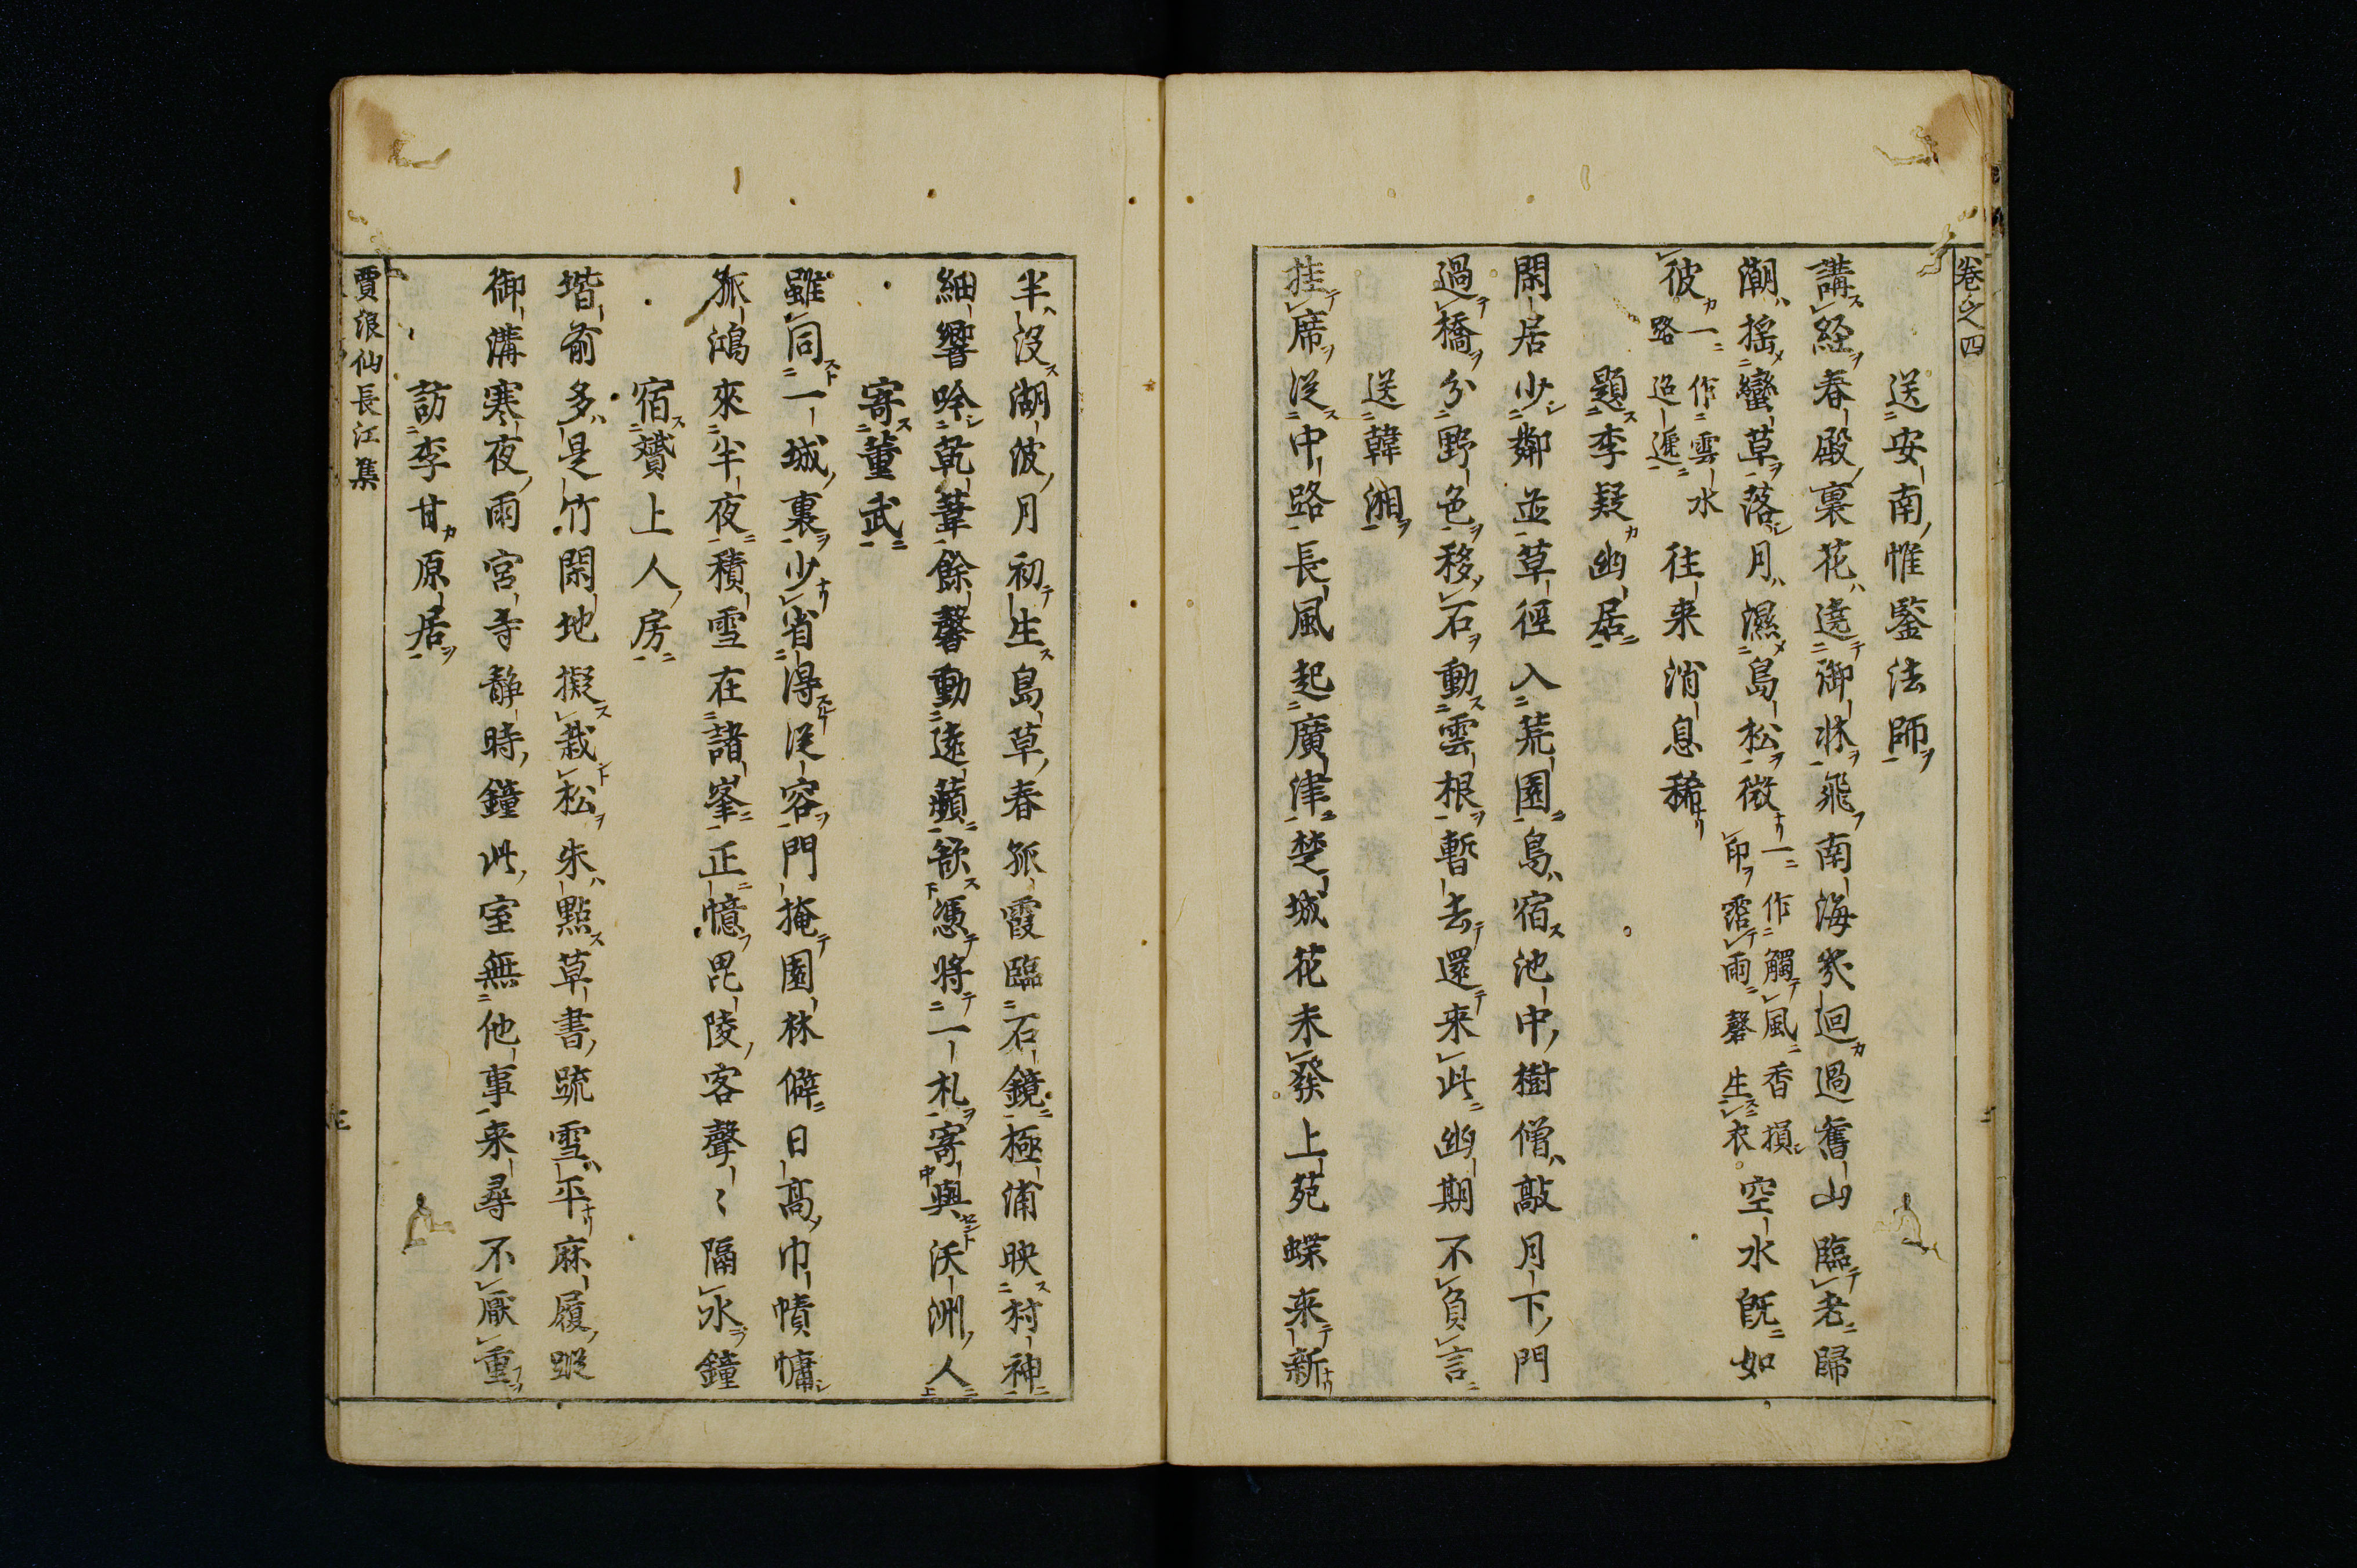 卷之四
送安南惟鍳法師
講経春殿裏花遶御牀飛南海幾迴過舊山臨老歸
潮揺蠻草落月濕島松微一作觸風香損印霑雨磬生衣空水既如
彼一作雲水路迢遞往来消息稀
題李疑幽居
閑居少鄰並草徑入荒園鳥宿池中樹僧敲月下門
過橋分野色移石動雲根暫去還来此幽期不負言
送韓湘
挂席従中路長風起廣津楚城花未發上苑蝶来新
半没湖波月初生島草春孤霞臨石鏡極浦映村神
細響吟乾葦餘馨動遠蘋欲憑將一札寄與沃洲人
寄董武
雖同一城裏少省得従容門掩園林僻日高巾幘慵
孤鴻來半夜積雪在諸峯正憶毘陵客聲〻隔水鐘
宿贇上人房
堦前多是竹閑地擬栽松朱點草書䟽雪平麻履蹤
御溝寒夜雨宮寺静時鐘此室無他事来尋不厭重
訪李甘原居
賈浪仙長江集